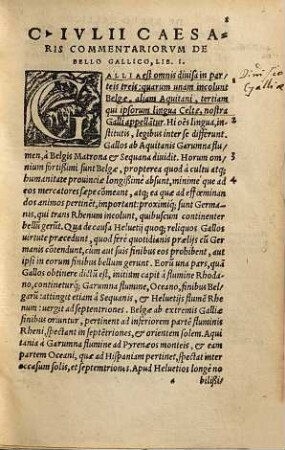 C. IVLII CAESA-
RIS COMMENTARIORVM DE
BELLO GALLICO, LIB. I.
GALLIA est omnis diuisa in par
teis treis: quarum unam incolunt
Belgæ, aliam Aquitani, tertiam
qui ipsorum lingua Celtæ, nostra
Galli appellãtur. Hi oẽs lingua, in-
stitutis, legibus inter se differũt.
Gallos ab Aquitanis Garumna flu-
men, à Belgis Matrona & Sequana diuidit. Horum om
nium fortißimi sunt Belgæ, propterea quod à cultu atq;
humanitate prouinciæ longißime absunt, minime que ad
eos mercatores sæpe cõmeant, atq; ea quæ ad effœminan
dos animos pertinẽt, important: proximiq; sunt Germa-
nis, qui trans Rhenum incolunt, quibuscum continenter
bellũ gerũt. Qua de causa Heluetij quoq; reliquos Gallos
uirtute præcedunt, quod ferè quotidianis prælijs cũ Ger-
manis cõtendunt, cum aut suis finibus eos prohibent, aut
ipsi in eorum finibus bellum gerunt. Eorũ una pars, quã
Gallos obtinere dictũ est, initium capit à flumine Rhoda-
no, continetũrq; Garumna flumine, Oceano, finibus Bel-
garũ: attingit etiam à Sequanis, & Heluetijs flumẽ Rhe-
num: uergit ad septentriones. Belgæ ab extremis Galliæ
finibus oriuntur, pertinent ad inferiorem partẽ fluminis
Rheni, spectant in septẽtriones, & orientem solem. Aqui
tania à Garumna flumine ad Pyrenæos monteis, & eam
partem Oceani, quæ ad Hispaniam pertinet, spectat inter
occasum solis, et septemtriones. Apud Heluetios longè no
a bilißi-
Galliæ
2
3
4